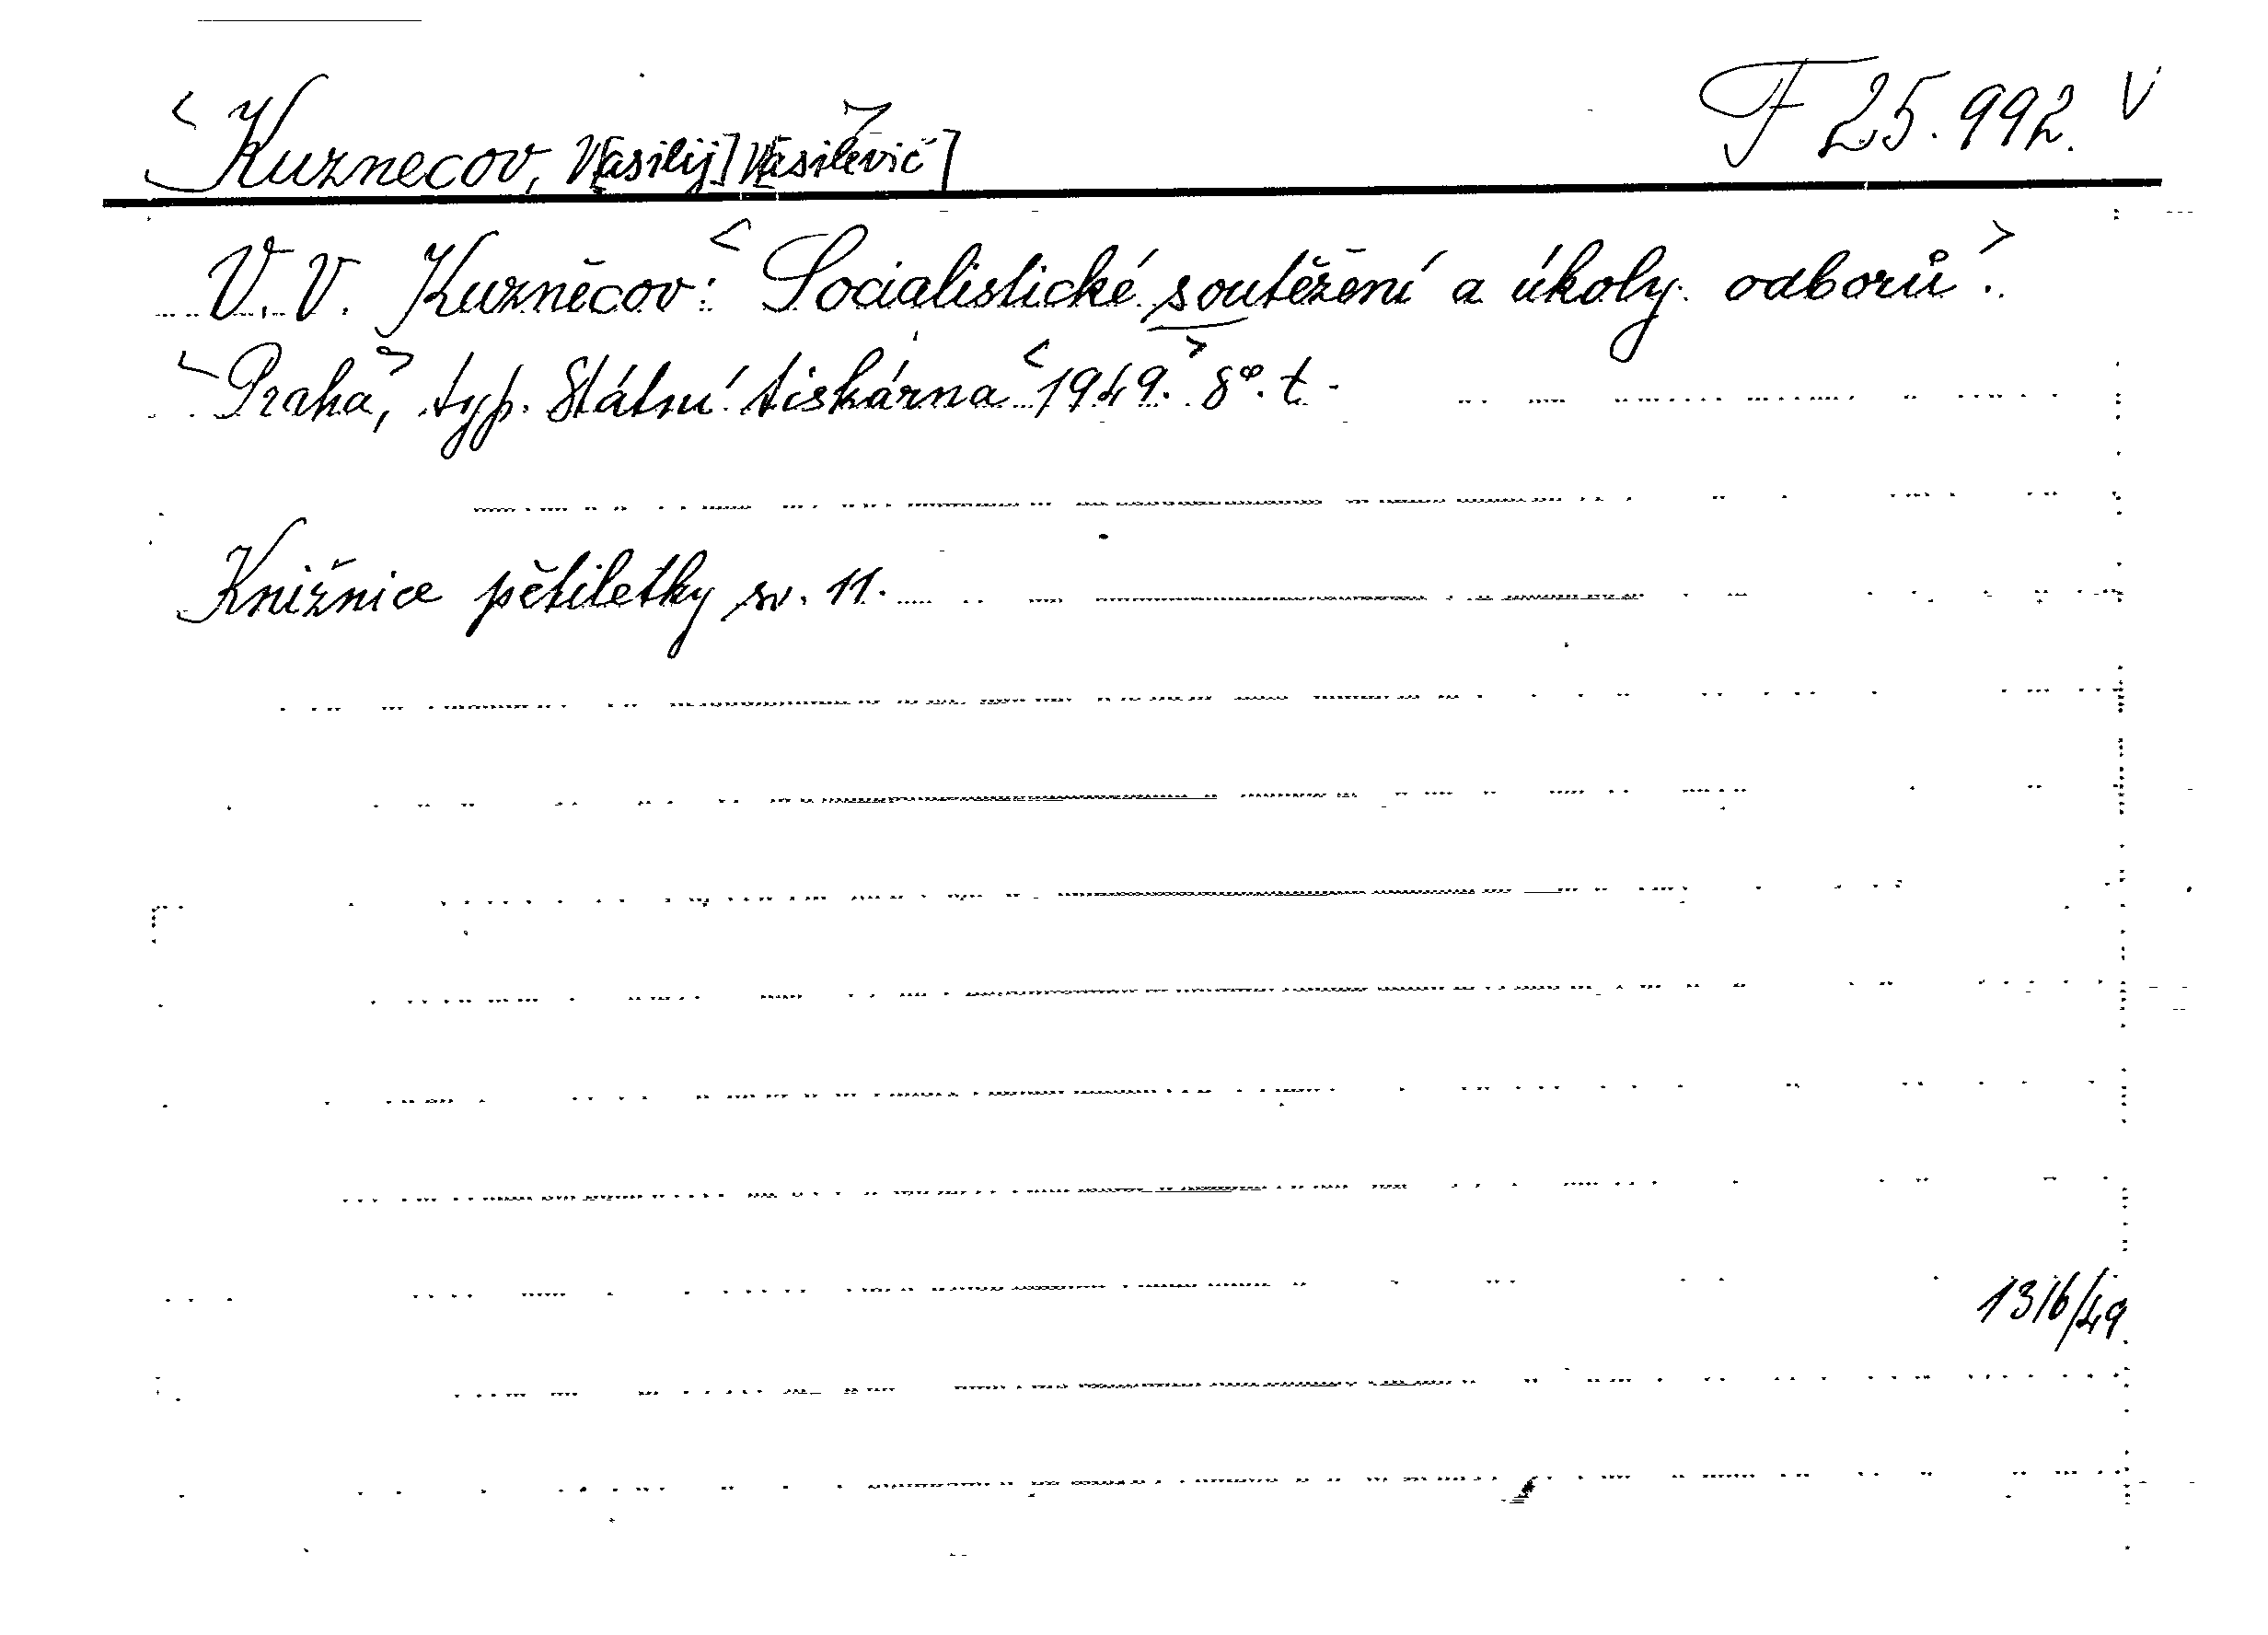 <Kuznecov, V[asilij] V[asilěvič]> F 25.992. V
V. V. Kuzněcov: <Socialistické soutěžení a úkoly odborů>.
<Praha>, typ. Státní tiskárna <1949.> 8°. t.
Knižnice pětiletky sv. 11.
1316/49